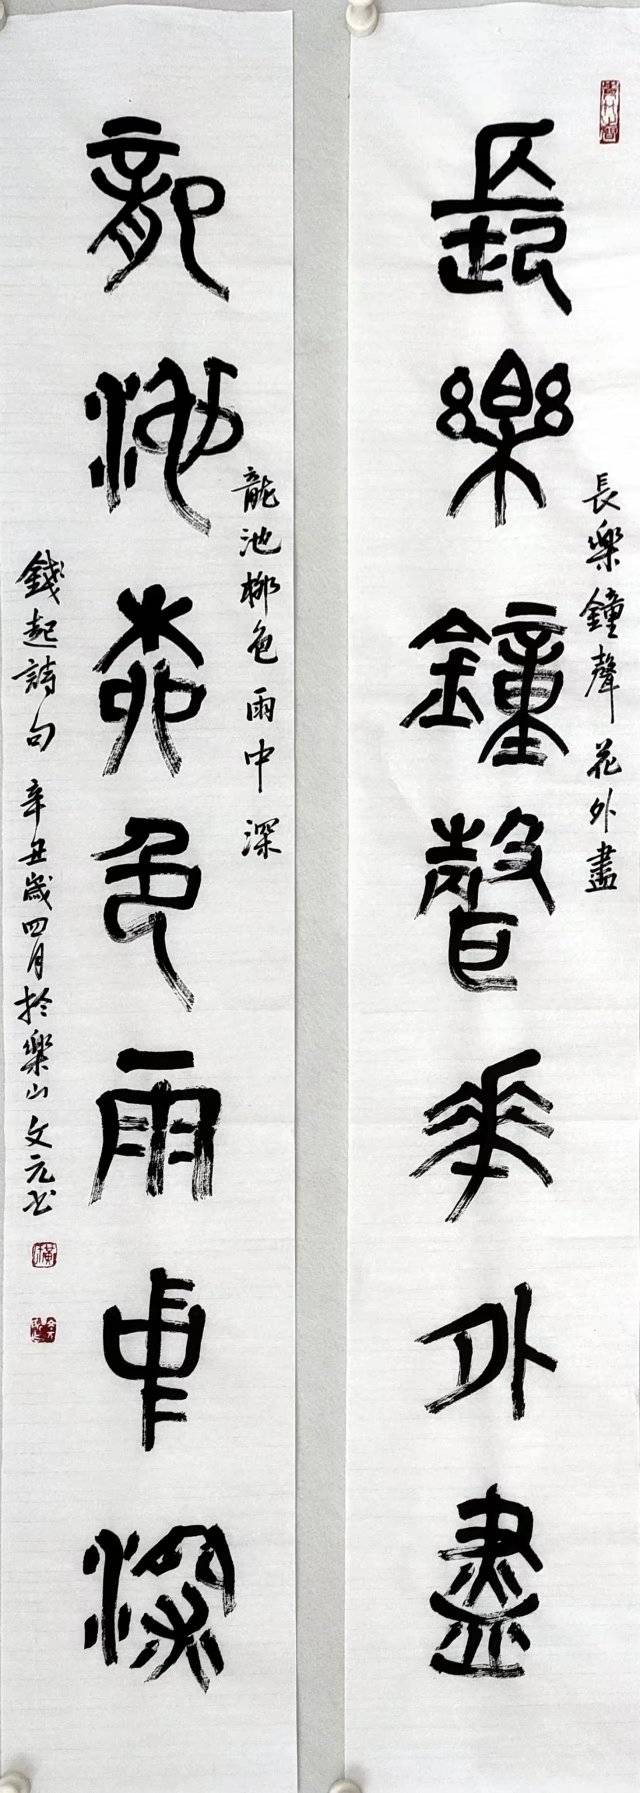 長樂鐘聲花外盡
長樂鐘聲花外盡
龍池柳色雨中深
龍池柳色雨中深
錢起詩句 辛丑歲四月於樂山文元书